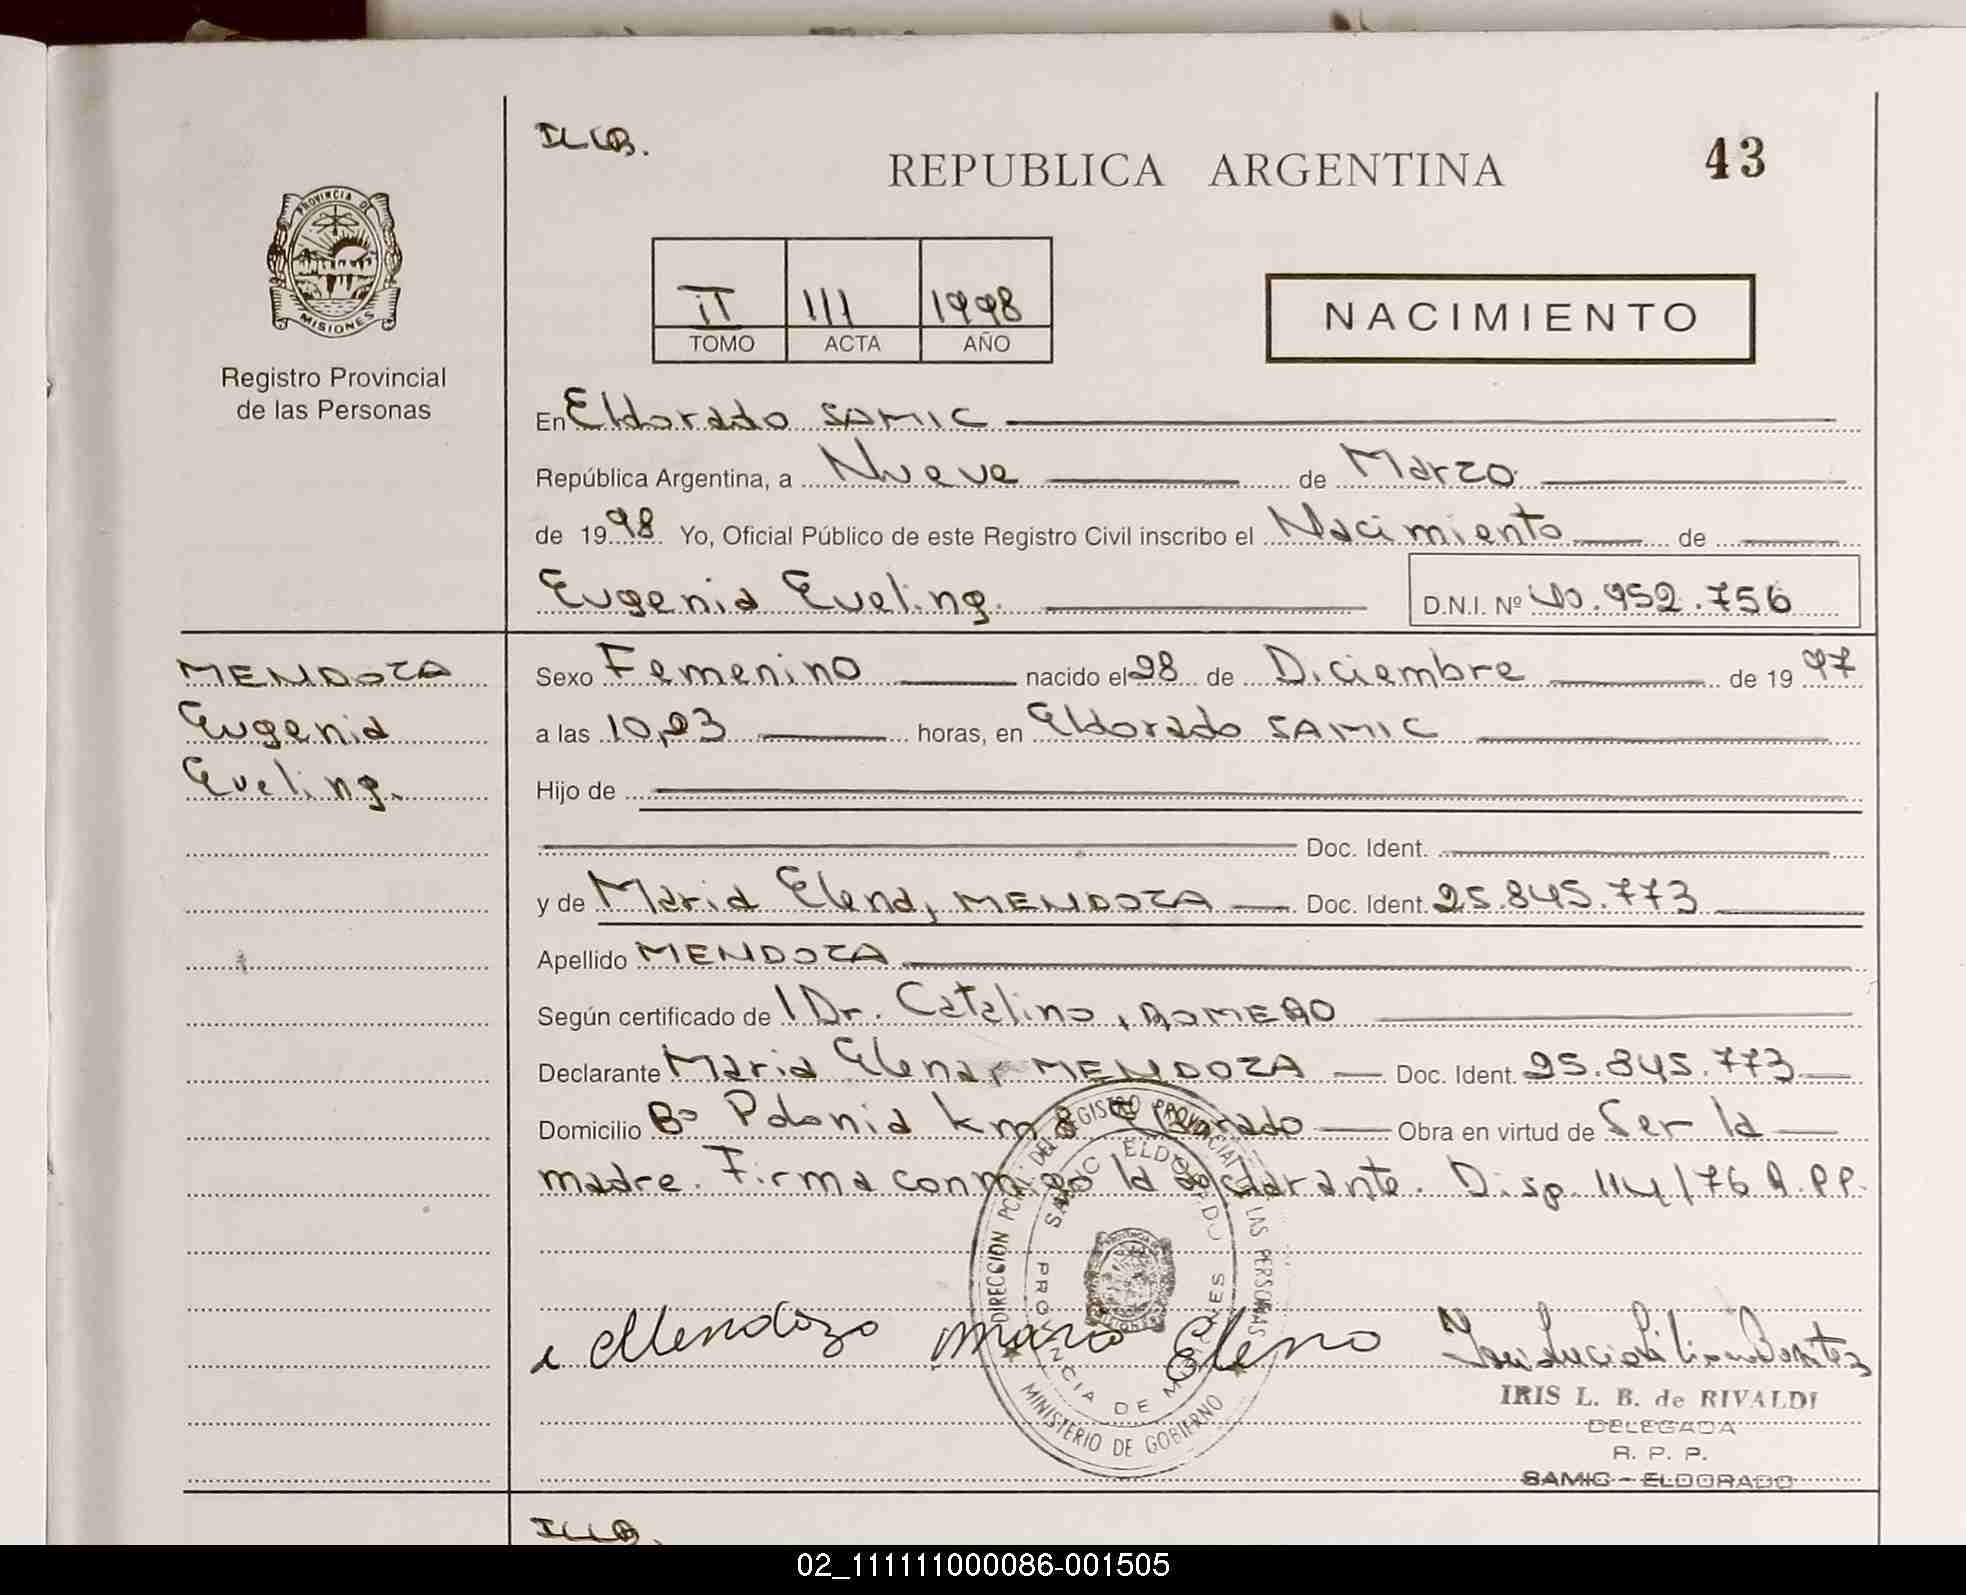 ILLB.
REPUBLICA ARGENTINA
43
PROVINCIA DE
MISIONES
Registro Provincial
de las Personas
II 111 1998
TOMO ACTA AÑO
NACIMIENTO
En Eldorado SAMIC
República Argentina, a Nueve de Marzo
de 1998 Yo, Oficial Público de este Registro Civil inscribo el Nacimiento de
Eugenia Eveling. D.N.I. Nº 40.952.756
MENDOZA
Eugenia
Eveling.
Sexo Femenino nacido el 28 de Diciembre de 1997
a las 10,23 horas, en Eldorado SAMIC
Hijo de
Doc. Ident.
y de Maria Elena, MENDOZA Doc. Ident. 25.845.773
Apellido MENDOZA
Según certificado de l Dr. Catalino, ROMERO
Declarante Maria Elena, MENDOZA Doc. Ident. 25.845.773
Domicilio Bº Polonia km 8 Eldorado Obra en virtud de Ser la
madre. Firma conmigo la declarante. Disp. 114/76 R.P.P.
DIRECCION PCIAL. DEL REGISTRO PROVINCIAL DE LAS PERSONAS
MINISTERIO DE GOBIERNO
SAMIC ELDORADO
PROVINCIA DE MISIONES
Mendoza Maria Elena
IRIS L. B. de RIVALDI
DELEGADA
R. P. P.
SAMIC - ELDORADO
ILLB.
02_111111000086-001505